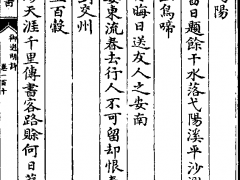 陽
日題餘干水落弋陽溪平沙
烏啼
晦日送友人之安南
東流春去行人不可留却恨
交州
百穀
天涯千里傳書客路賖何日
御選明詩
卷一百十